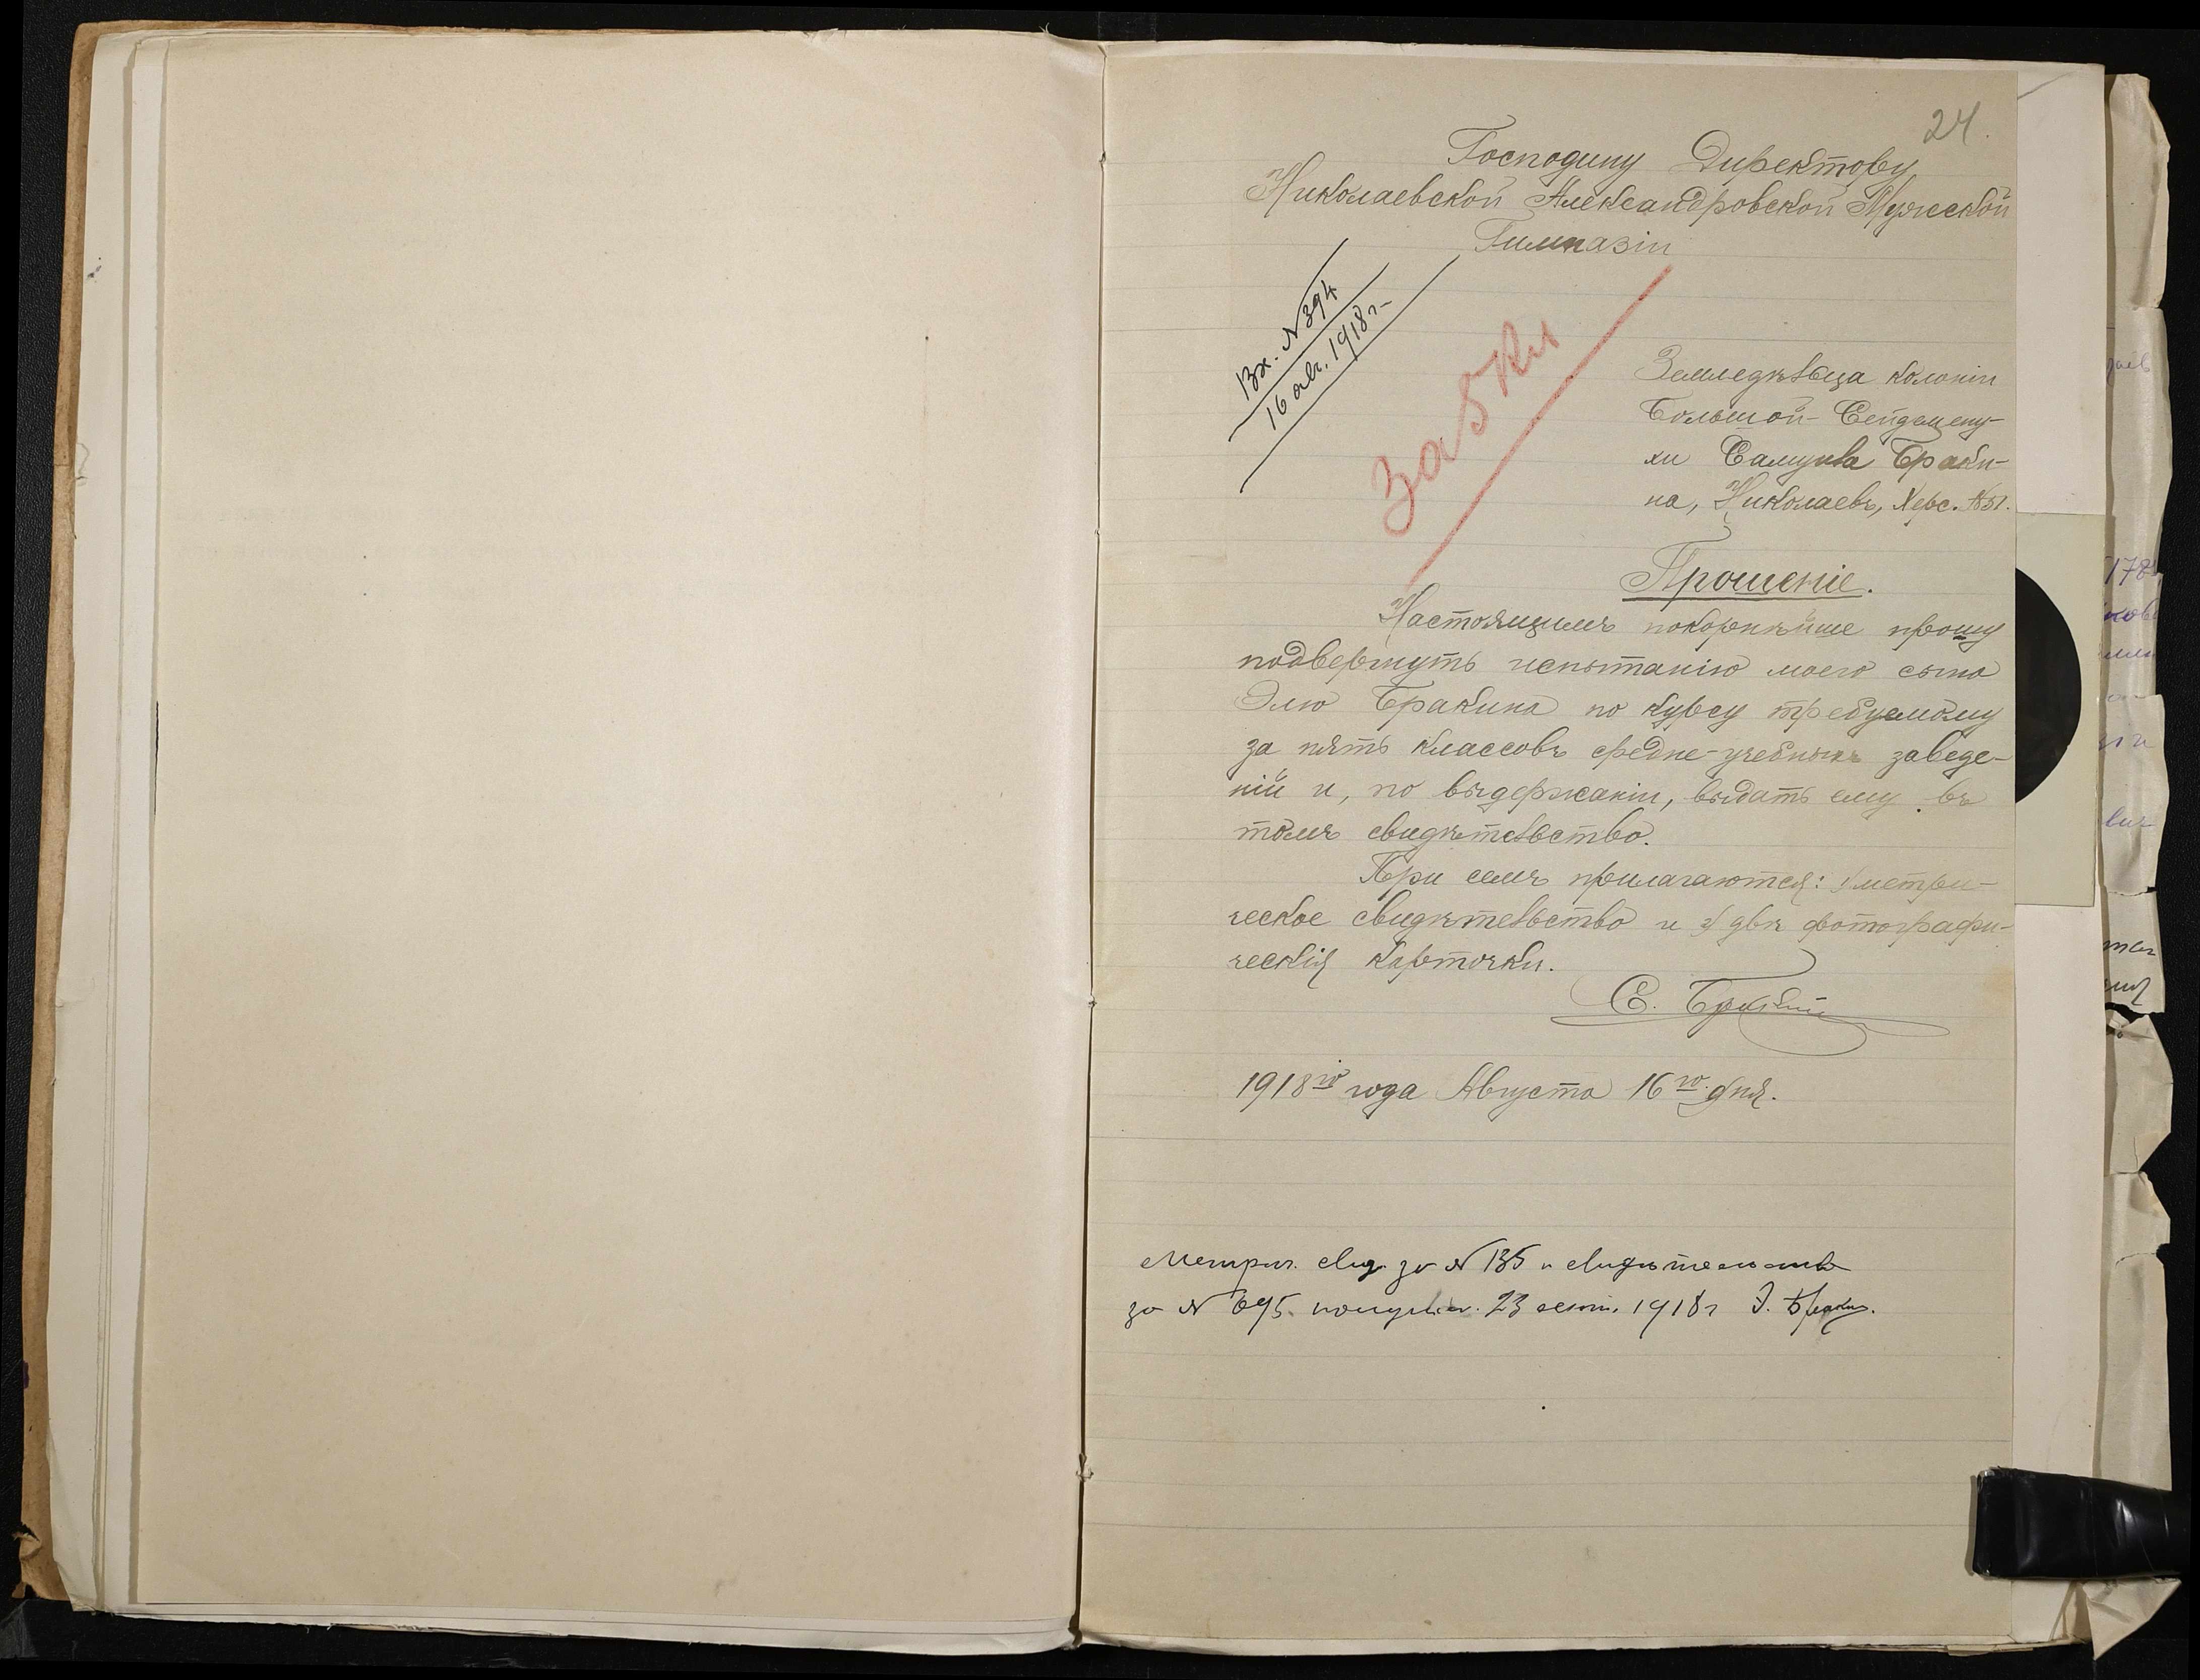 24.
Господину Директору
Николаевской Александровской Мужеской
Гимназіи
Вх. № 394
16 авг. 1918 г.
за 5 кл
Земледѣльца колоніи
Большой-Сейдемену-
хи Самуила Браки-
на, Николаевъ, Херс. №51.
Прошеніе.
Настоящимъ покорнѣйше прошу
подвергнуть испытанію моего сына
Элю Бракина по курсу требуемому
за пять классовъ средне-учебныхъ заведе-
ній и, по выдержаніи, выдать ему въ
томъ свидѣтельство.
При семъ прилагаются: 1) метри-
ческое свидѣтельство и 2) двѣ фотографи-
ческія карточки.
С. Бракин
1918го года Августа 16го дня.
Метрич. свид. за № 135 и свидѣтельство
за № 695 получил. 23 сент. 1918 г Э. Бракин.